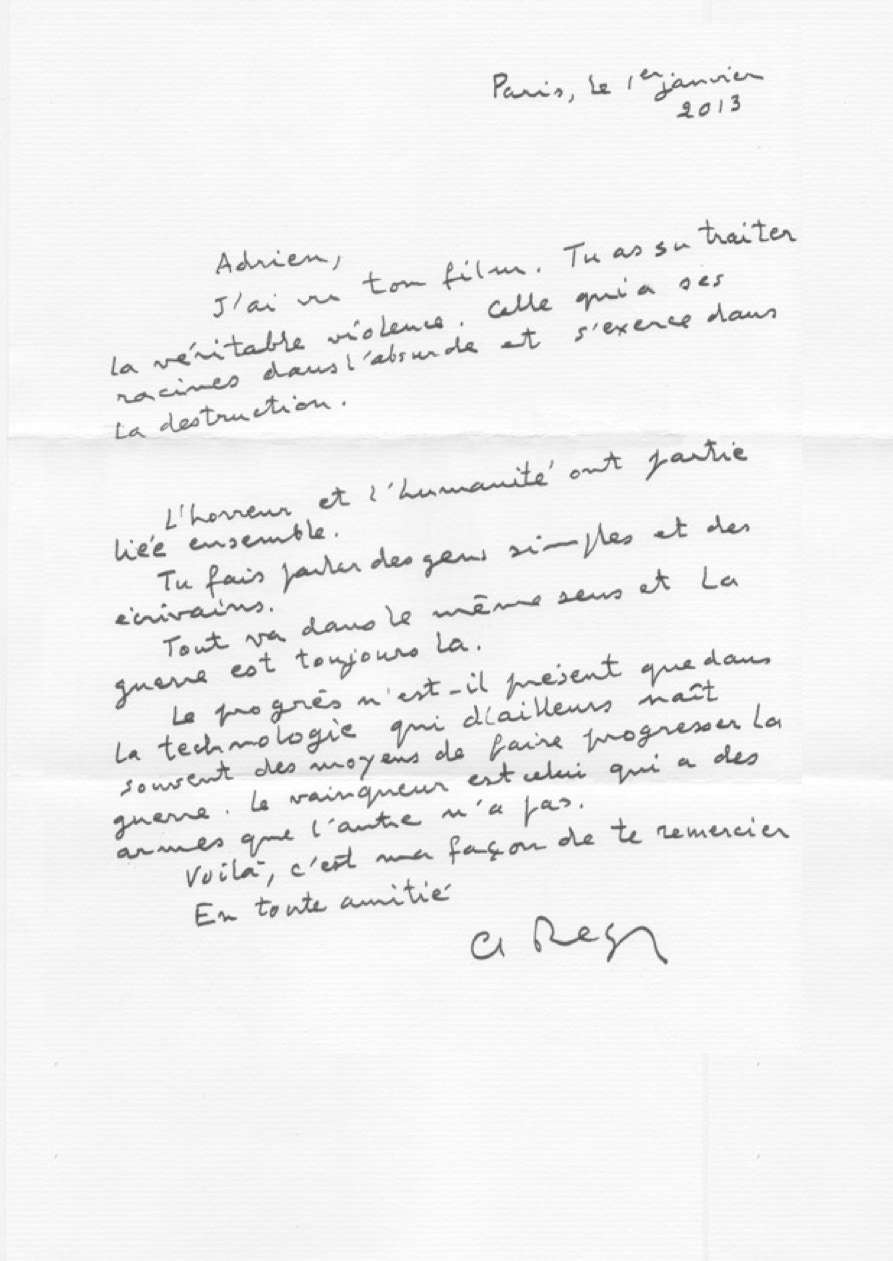 Paris, le 1er janvier
2013
Adrien,
J'ai vu ton film. Tu as su traiter
la véritable violence. Celle qui a ses
racines dans l'absurde et s'exerce dans
la destruction.
L'horreur et l'humanité ont partie
liée ensemble.
Tu fais parler des gens simples et des
écrivains.
Tout va dans le même sens et la
guerre est toujours la.
Le progrès n'est-il présent que dans
la technologie qui d'ailleurs naît
souvent des moyens de faire progresser la
guerre. Le vainqueur est celui qui a des
armes que l'autre n'a pas.
Voilà, c'est ma façon de te remercier
En toute amitié
Cl Regy